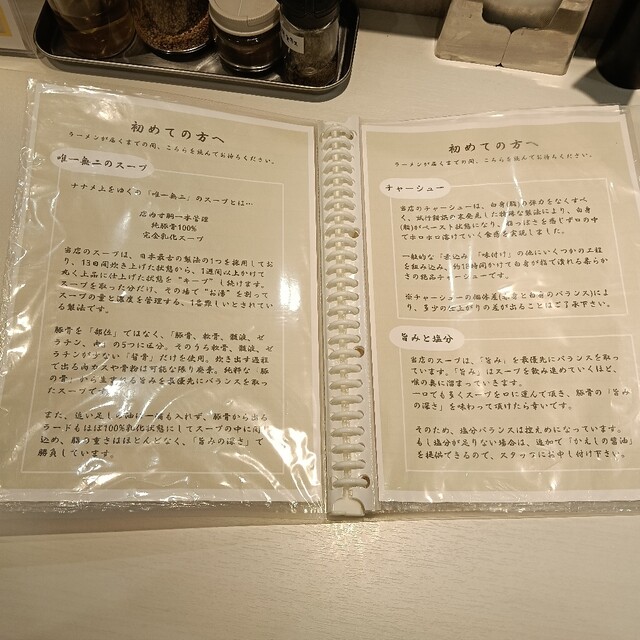 初めての方へ
ラーメンが届くまでの間、こちらを読んでお待ちください。
唯一無二のスープ
ナナメ上をゆくの「唯一無二」のスープとは…
広めす鍋一本管理
純豚骨100%
完全乳化スープ
当店のスープは、日本最古の製法の1つを採用してお
り、13日間炊き上げた状態から、1週間以上かけて
丸く上品に仕上げた状態を"キープ"し続けます。
スープを取った分だけ、その場で"お湯"を割って
スープの量と濃度を管理する、1番難しいとされてい
る製法です。
豚骨を「部位」ではなく、「豚骨、軟骨、髄液、ゼ
ラチン、肉」の5つに区分。そのうち軟骨、髄液、ゼ
ラチンが少ない「背骨」だけを使用。炊き出す過程
で出る肉カスや骨粉は可能な限り廃棄。純粋な「豚
の骨」から生まれる旨みを最優先にバランスを取っ
たスープです。
また、追い足しの油は一滴も入れず、豚骨から出る
ラードもほぼ100%乳化状態にしてスープの中に閉じ
込め、脂の重さはほとんどなく、「旨みの深さ」で
勝負しています。
初めての方へ
ラーメンが届くまでの間、こちらを読んでお待ちください。
チャーシュー
当店のチャーシューは、白身(脂)の弾力をなくすべ
く、試行錯誤の末発見した特殊な製法により、白身
(脂)がペースト状態になり、脂っぽさを感じず口の中
でホロホロ溶けていく食感を実現しました。
一般的な「煮込み」「味付け」の他にいくつかの工程
を組み込み、約18時間かけて白身が指で潰れる柔らか
さの絶品チャーシューです。
※チャーシューの個体差(赤身と白身のバランス)によ
り、多少の仕上がりの差が出ることはご了承下さい。
旨みと塩分
当店のスープは、「旨み」を最優先にバランスを取っ
ています。「旨み」はスープを飲み進めていくほど、
喉の奥に溜まっていきます。
一口でも多くスープを口に運んで頂き、豚骨の「旨み
の深さ」を味わって頂けたら幸いです。
そのため、塩分バランスは控えめになっています。
もし塩分が足りない場合は、追加で「かえしの醤油」
を提供できるので、スタッフにお申し付け下さい。